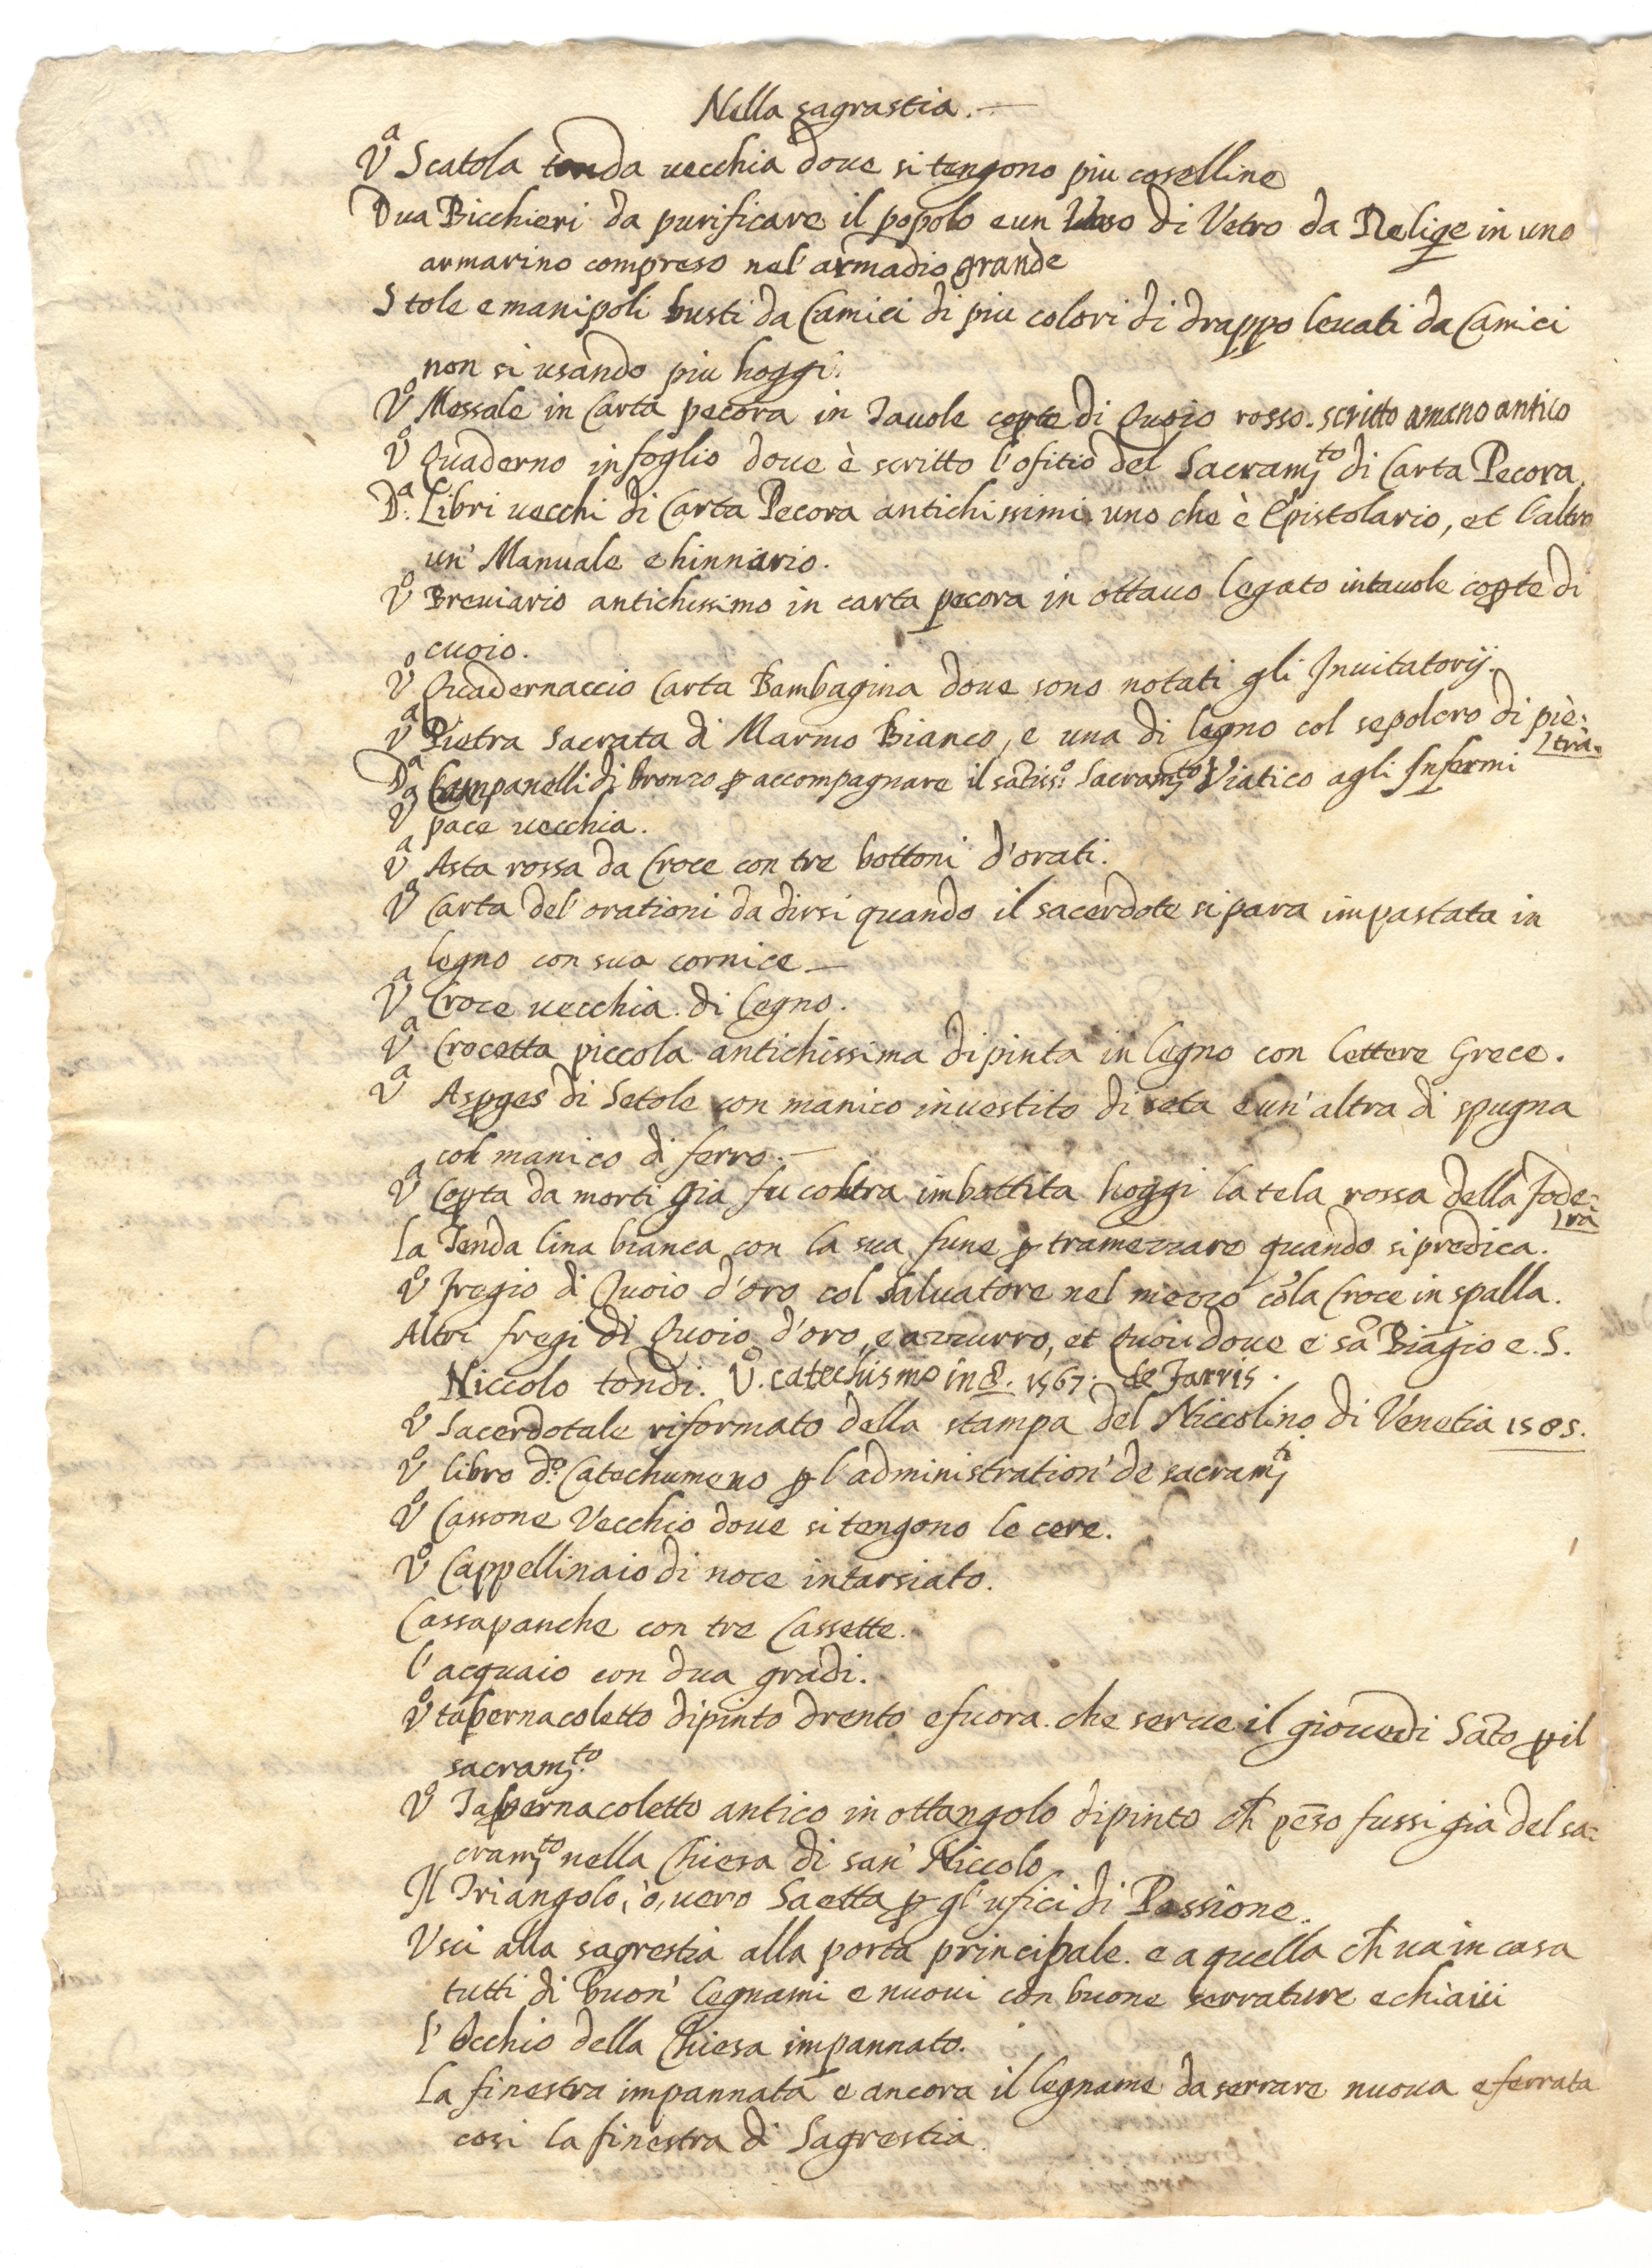 Nella sagrastia.
Vᵃ Scatola tonda uecchia doue si tengono piu coselline
Dua Bicchieri da purificare il popolo e un Vaso di Vetro da Reliqe in uno
armarino compreso nel' armadio grande
Stole e manipoli busti da Camici di piu colori di drappo leuati da Camici
non si usando piu hoggi.
Vº Messale in Carta pecora in Tauole copte di Quoio rosso. scritto amano antico
Vº Quaderno in foglio doue è scritto l'ofitio del Sacramᵗᵒ di Carta Pecora.
Dᵃ. Libri uecchi di Carta Pecora antichissimi uno che è Epistolario, et l'altro
un' Manuale e hinnario.
Vº Breuiario antichissimo in carta pecora in ottauo legato intauole copte di
cuoio.
Vº Quadernaccio Carta Bambagina doue sono notati gli Inuitatorij.
Vᵃ Pietra Sacrata di Marmo Bianco, e una di legno col sepolcro di piè:
tra.
Dᵃ Campanelli di bronzo p accompagnare il satiss:º Sacramᵗᵒ Viatico agli Infermi
Vᵃ pace uecchia.
Vᵃ Asta rossa da Croce con tre bottoni d'orati.
Vᵃ Carta del' orationi da dirsi quando il sacerdote si para impastata in
legno con sua cornice
Vᵃ Croce uecchia di legno.
Vᵃ Crocetta piccola antichissima dipinta in legno con lettere Grece.
Vᵃ Aspges di Setole con manico inuestito di seta e un' altra di spugna
con manico di ferro.
Vᵃ Copta da morti gia fu coltra imbottita hoggi la tela rossa della fode:
ra
La Tenda lina bianca con la sua fune p tramezzare quando si predica.
Vº Fregio di Quoio d'oro col saluatore nel mezzo cõla Croce in spalla.
Altri fregi di Quoio d'oro, e azzurro, et Quoi doue e sã Biagio e. S.
Niccolo tondi. Vº. catechismo in 8. 1567.
Vº Sacerdotale riformato della stampa del Niccolino di Venetia 1585.
Vº libro dº. Catechumeno p l'administration' de sacramᵗⁱ
Vº Cassone Vecchio doue si tengono le cere.
Vº Cappellinaio di noce intarsiato.
Cassapanche con tre Cassette.
l'acquaio con dua gradi.
Vº tabernacoletto dipinto drento e fuora. che serue il giouedi Sãto p il
sacramᵗᵒ.
Vº Tabernacoletto antico in ottangolo dipinto ch̃ pẽso fussi gia del sa:
cramᵗᵒ nella Chiesa di san' Niccolo
Il Triangolo, ò, uero Saetta p gl' ufici di Passione.
Vsci alla sagrestia alla porta principale. e a quella ch̃ ua in casa
tutti di buon' legnami e nuoui con buone serrature e chiaui
l' Occhio della Chiesa impannato.
La finestra impannata e ancora il legname da serrare nuoua e ferrata
cosi la finestra di Sagrestia